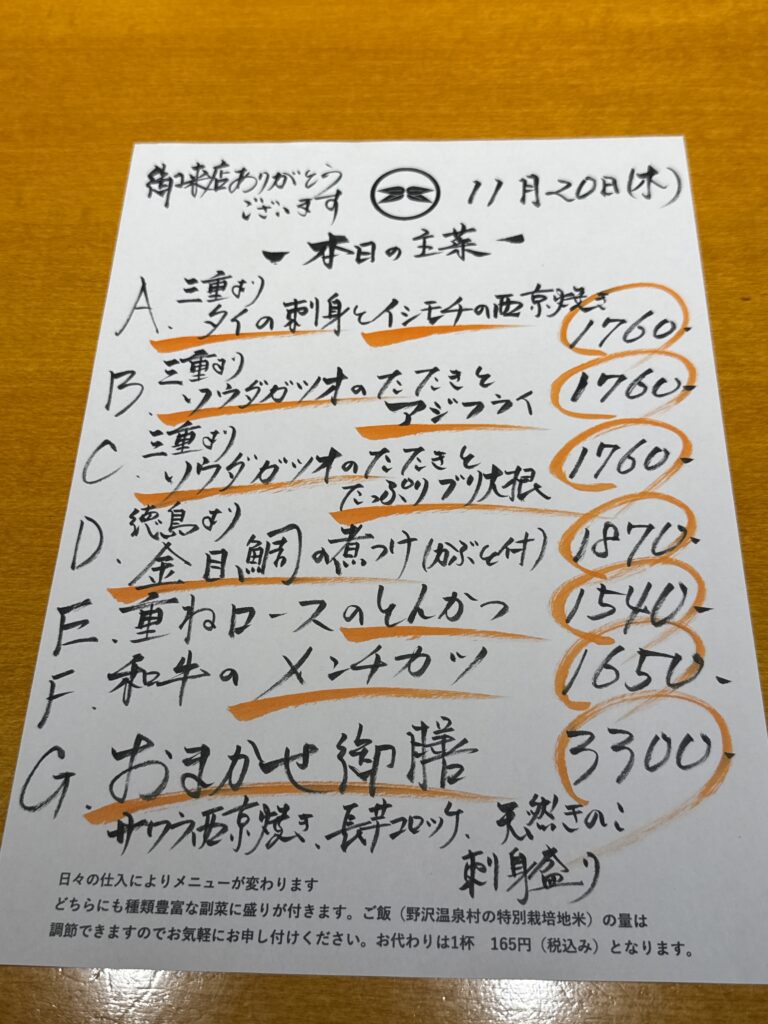 御来店ありがとう
ございます
11月20日(木)
ー本日の主菜ー
A. 三重より
タイの刺身とイシモチの西京焼き 1760-
B. 三重より
ソウダガツオのたたきと
アジフライ 1760-
C 三重より
ソウダガツオのたたきと
たっぷりブリ大根 1760-
D. 徳島より
金目鯛の煮つけ(かぶと付) 1870-
E. 重ねロースのとんかつ 1540-
F. 和牛のメンチカツ 1650-
G. おまかせ御膳 3300-
サワラ西京焼き、長芋コロッケ、天然きのこ
刺身盛り
日々の仕入によりメニューが変わります
どちらにも種類豊富な副菜に盛りが付きます。ご飯（野沢温泉村の特別栽培地米）の量は
調節できますのでお気軽にお申し付けください。お代わりは1杯　165円（税込み）となります。